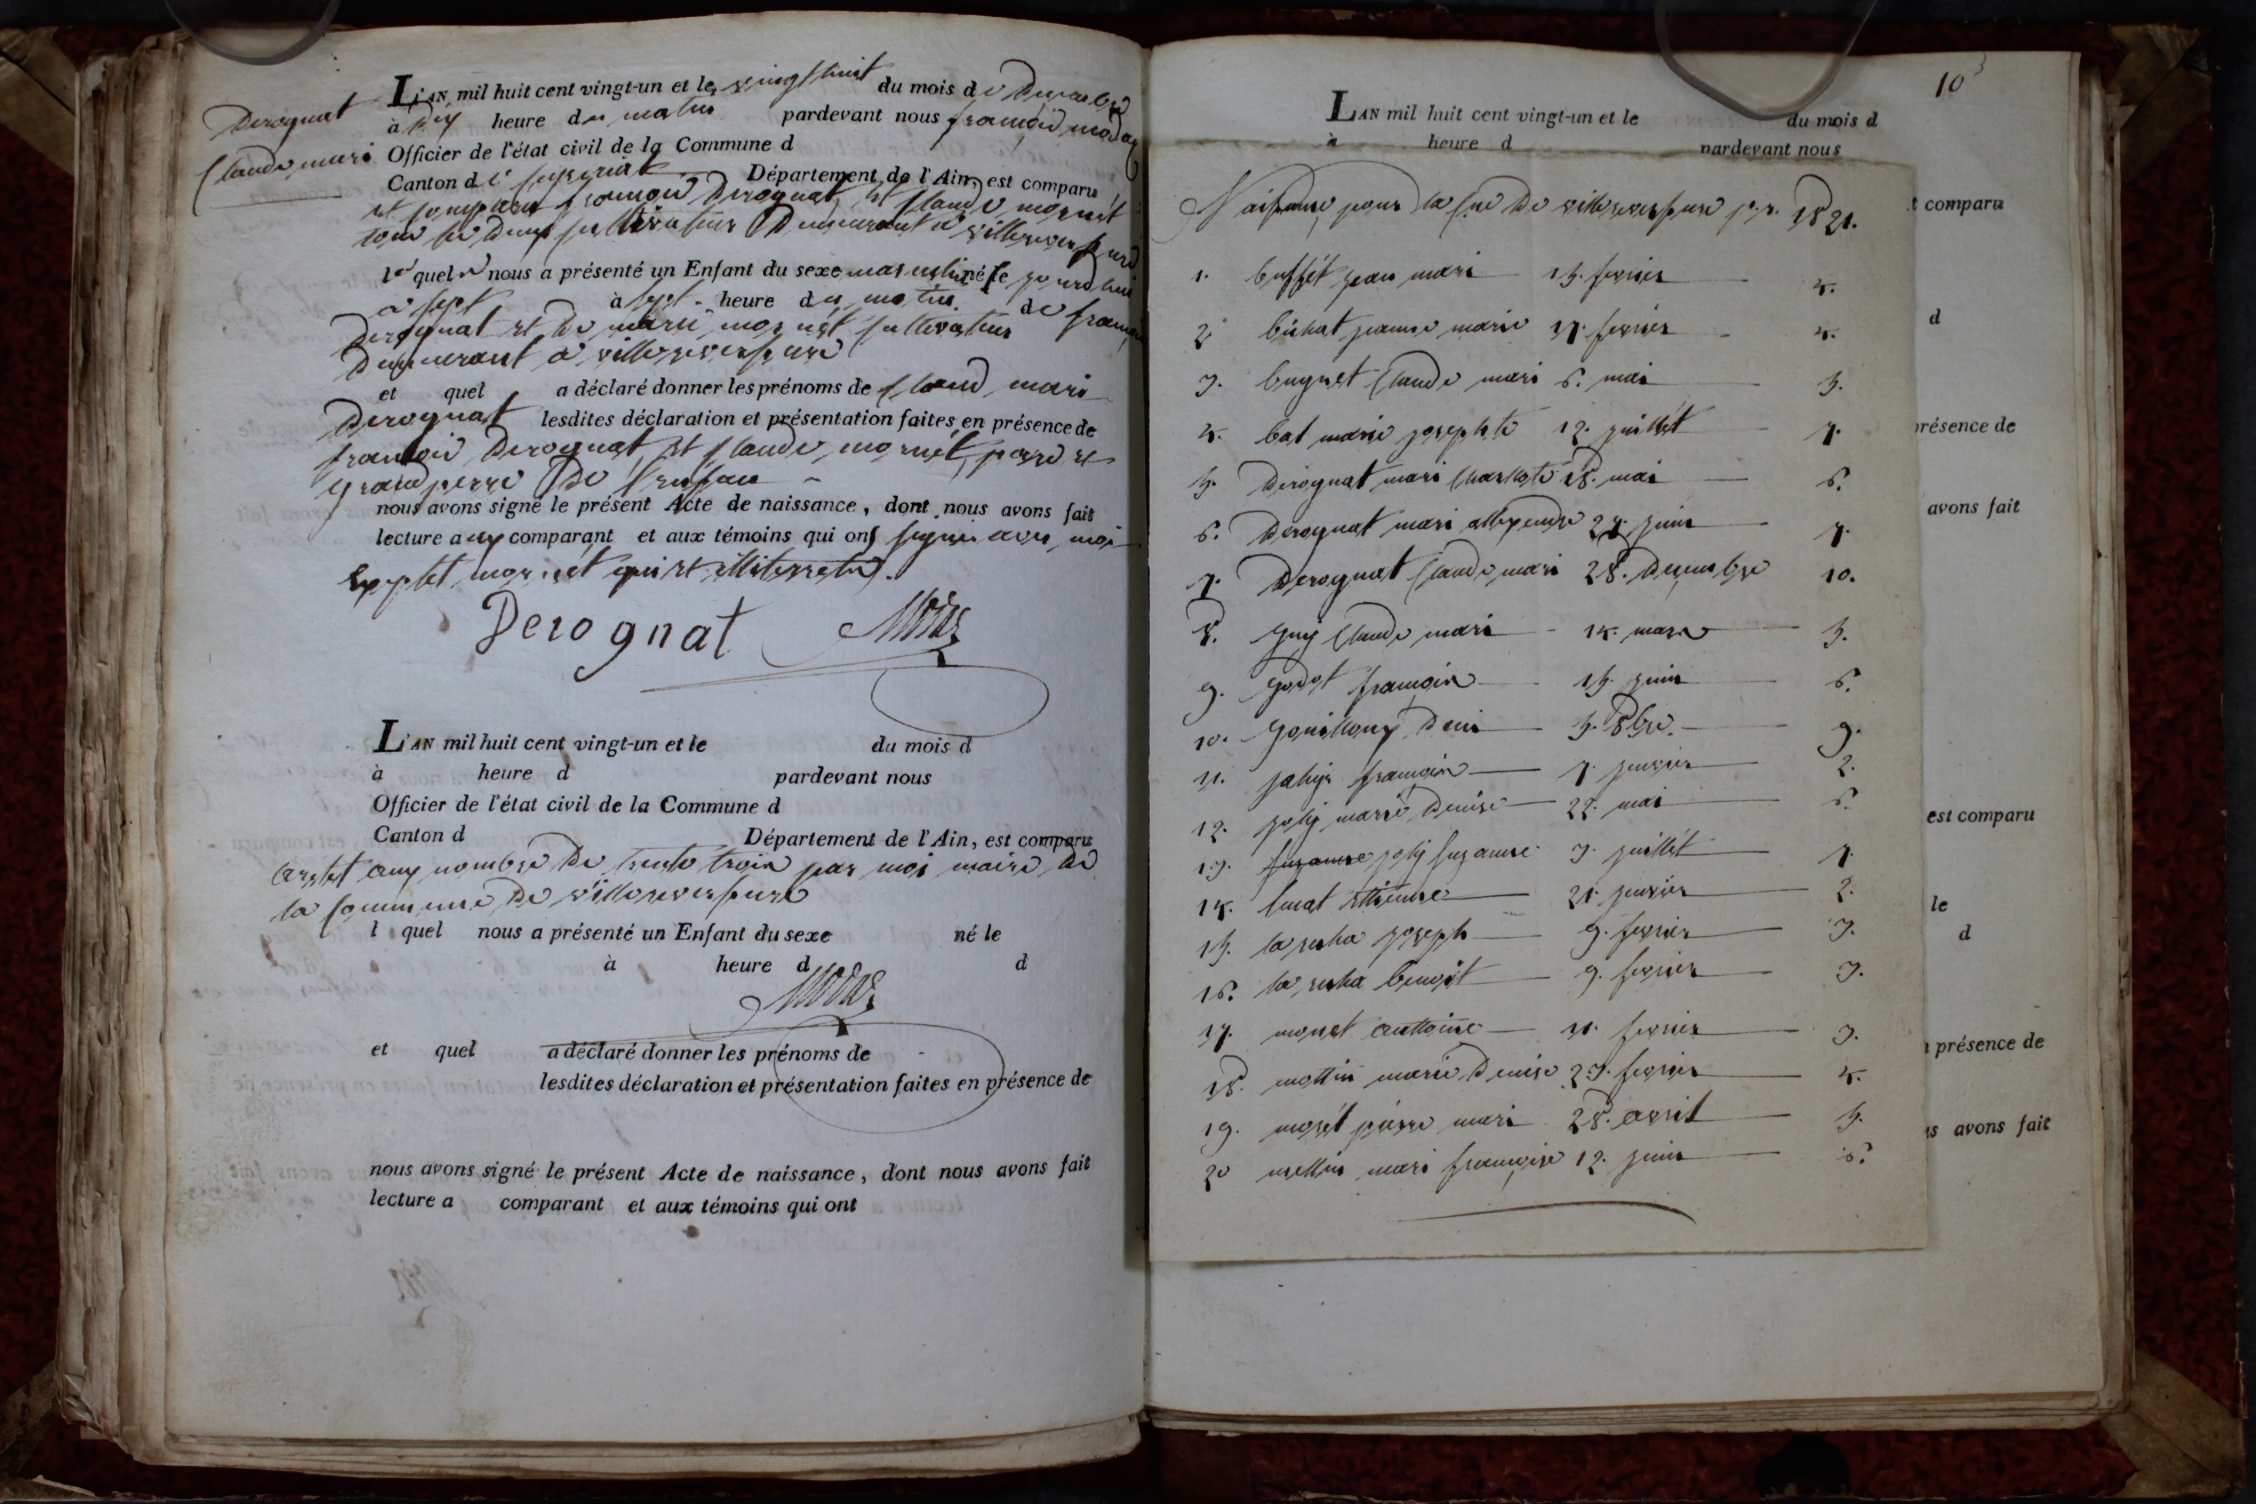 Derognat
Claude mari
L'AN mil huit cent vingt-un et le vingt huit du mois de Decembre
à Dix heure du matin pardevant nous françois modas
Officier de l'état civil de la Commune d
Canton de Département de l'Ain, est comparu
et comparu françois Derognat et Claude mornét
tous les deux cultivateur Demeurant a villereversure
lesquels nous a présenté un Enfant du sexe masculin né le jourdhui
a sept à sept heure du matin de françois
Derognat et de marie mornét cultivateur
Demeurant a villereversure
et quel a déclaré donner les prénoms de Claud mari
Derognat lesdites déclaration et présentation faites en présence de
francois Derognat et Claude mornét, pere et
grand perre De l'enfan
nous avons signé le présent Acte de naissance, dont nous avons fait
lecture aux comparant et aux témoins qui ont signé avec moi
Exeptet mornét qui et illiterete.
Derognat Modas
L'AN mil huit cent vingt-un et le du mois d
à heure d pardevant nous
Officier de l'état civil de la Commune d
Canton d Département de l'Ain, est comparu
arretet aux nombre De trente trois par moi maire de
la Commune De villereversure
l quel nous a présenté un Enfant du sexe né le
à heure d d
Modas
et quel a déclaré donner les prénoms de
lesdites déclaration et présentation faites en présence de
nous avons signé le présent Acte de naissance, dont nous avons fait
lecture a comparant et aux témoins qui ont
10
L'AN mil huit cent vingt-un et le du mois d
à heure d pardevant nous
t comparu
d
présence de
avons fait
est comparu
le
d
présence de
s avons fait
Naissance pour la Cne De villereversure pr. 1821.
1. buffét jean mari 15. fevrier 4.
2 bichat jeanne marie 17. fevrier 4.
3. bugnet Claude mari 6. mai 5.
4. bat marie josephte 12. juillét 7.
5. Derognat mari Charlote 18. mai 6.
6. Derognat mari 27. juin 7.
7. Derognat Claude mari 28. Decembre 10.
8. guy Claude mari 14. mars 5.
9. godot françois 15. juin 6.
10. Denis 5. 8bre. 9.
11. françois 7. janvier 2.
12. joly marie Denise 22. mai 6.
13. suzanne joly suzanne 3. juillét 7.
14. luat ettienne 21. janvier 2.
15. joseph 9. fevrier 3.
16. benoit 9. fevrier 3.
17. monet anttoine 11. fevrier 3.
18. mottin marie Denise 23. fevrier 4.
19. morét pierre mari 28. avril 5.
20 mettin mari françoise 12. juin 6.